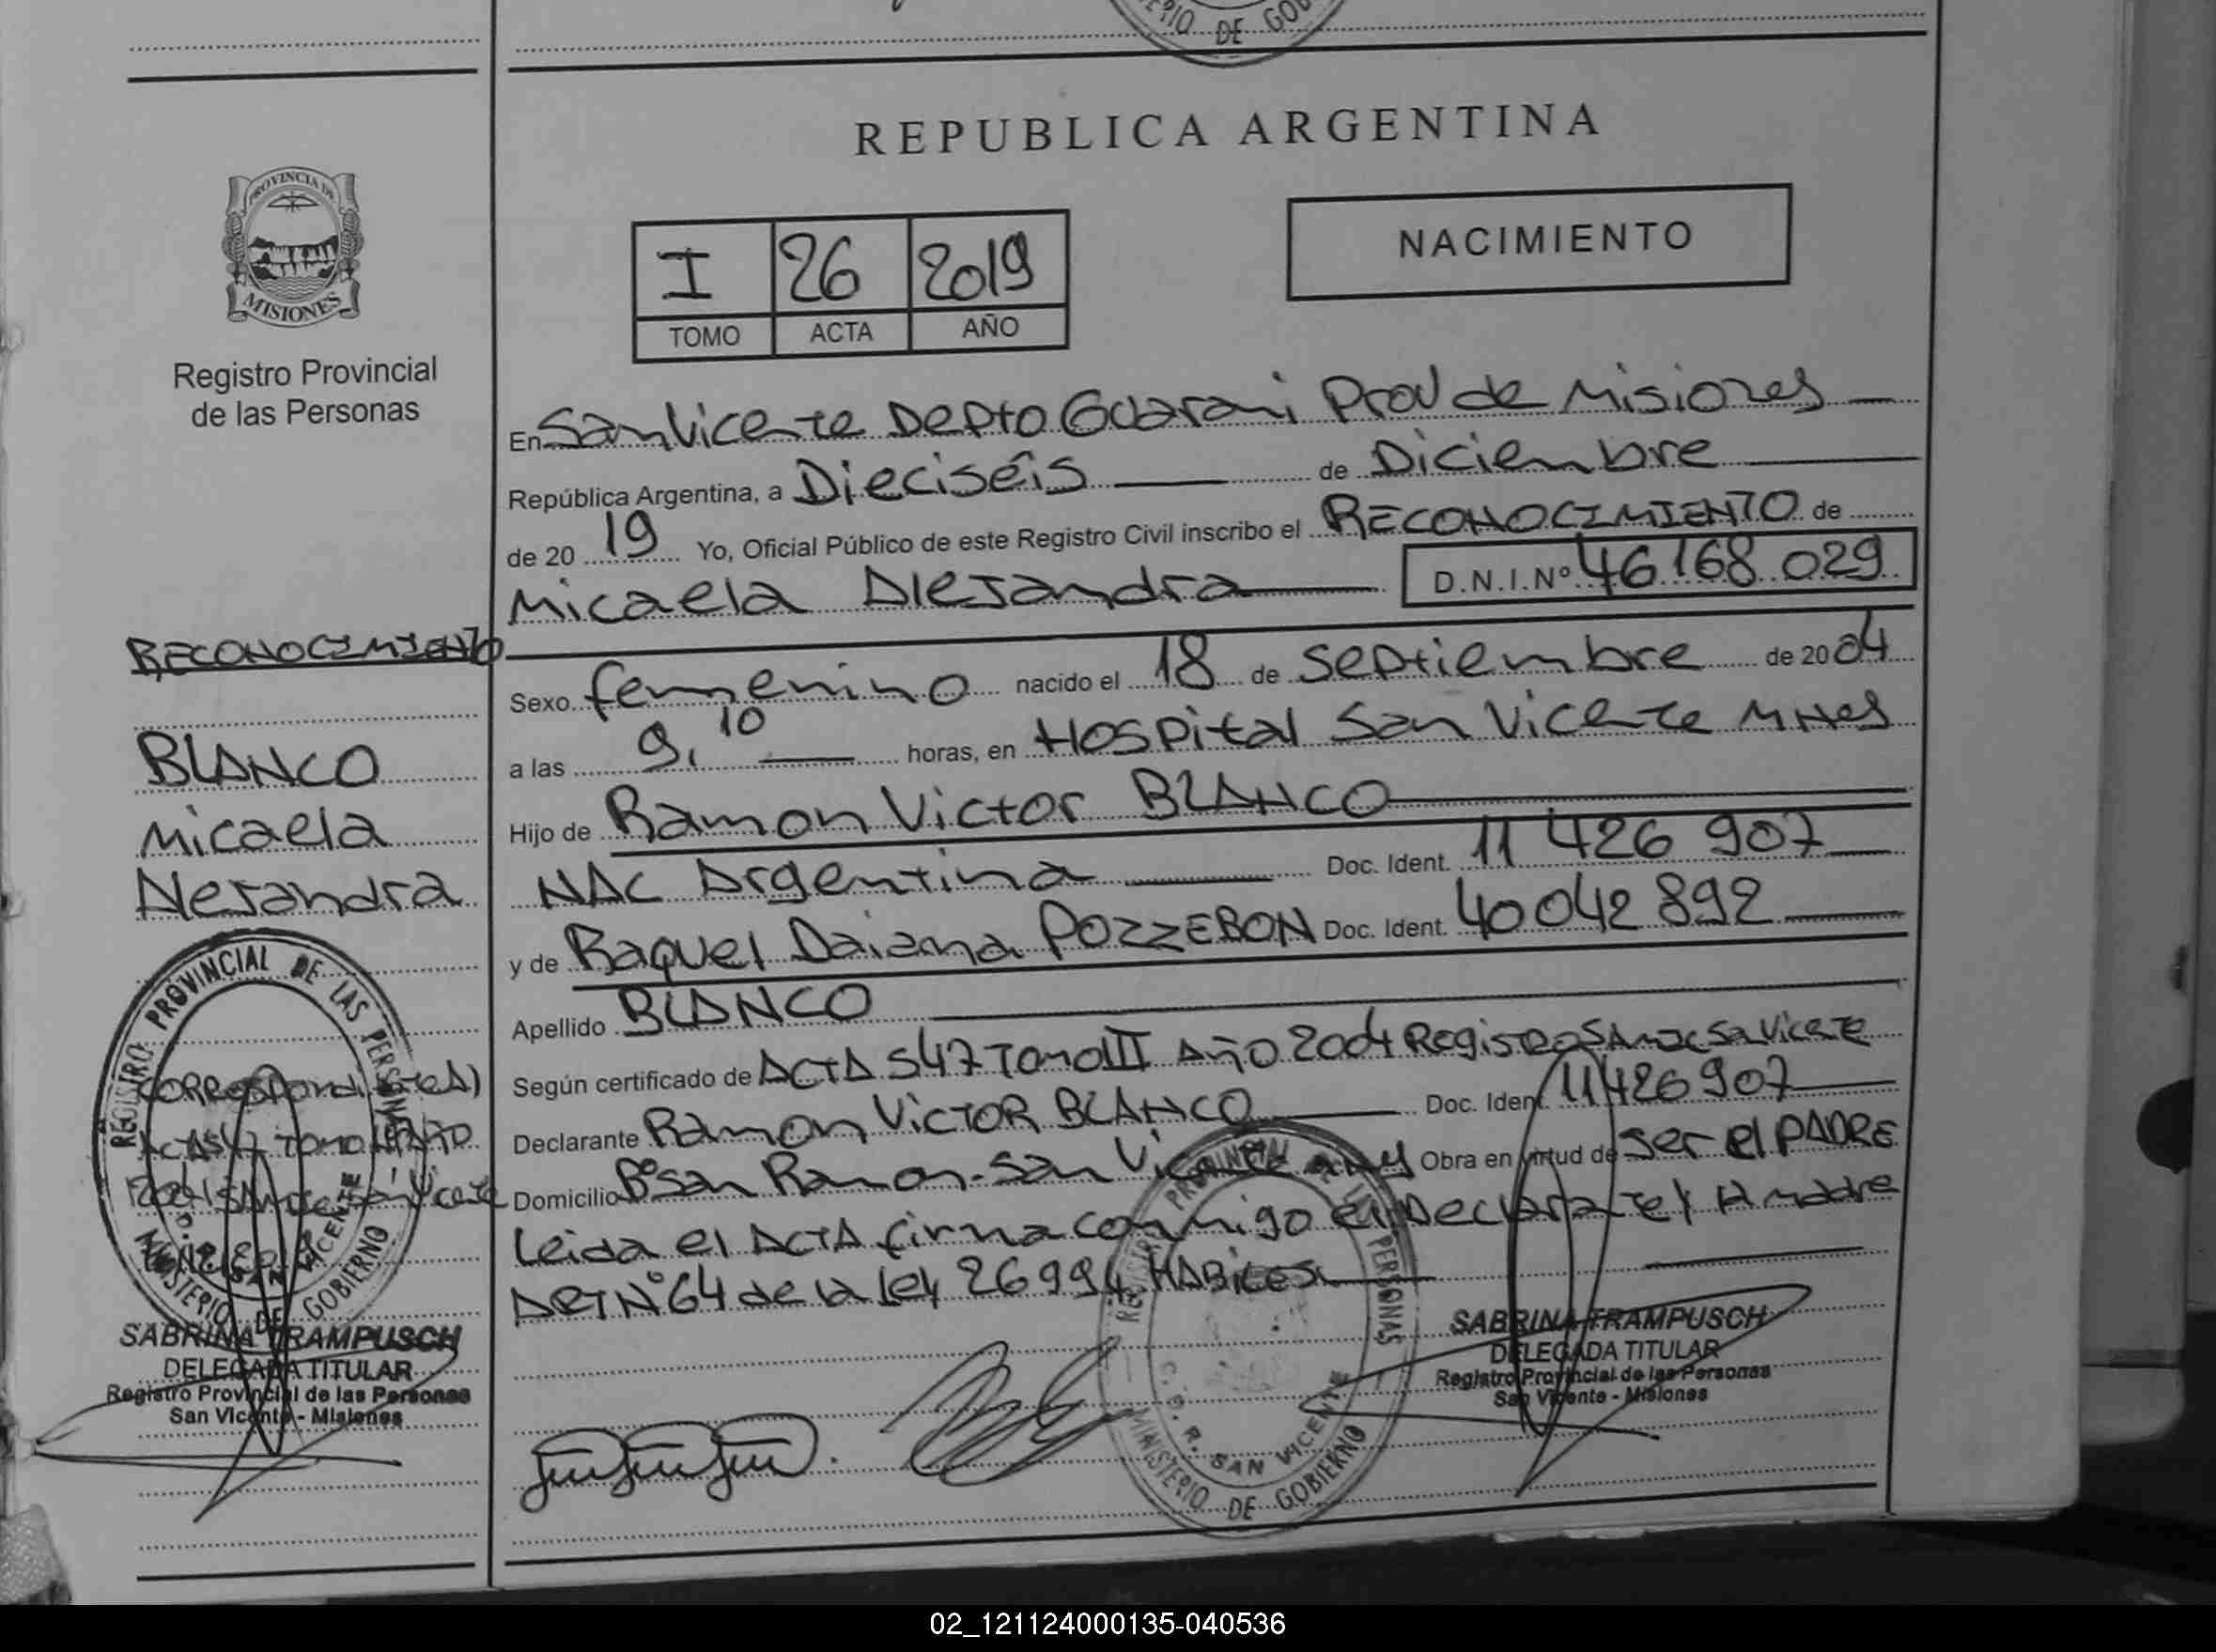 RIO DE GOB
REPUBLICA ARGENTINA
PROVINCIA DE
MISIONES
Registro Provincial
de las Personas
I 26 2019
TOMO ACTA AÑO
NACIMIENTO
En San Vicente Depto Guarani Prov de Misiones
República Argentina, a Dieciséis de Diciembre
de 20 19 Yo, Oficial Público de este Registro Civil inscribo el RECONOCIMIENTO de
Micaela Alejandra D.N.I.Nº 46.168.029
Sexo femenino nacido el 18 de septiembre de 2004
a las 9,10 horas, en Hospital San Vicente Mnes
Hijo de Ramon Victor BLANCO
NAC Argentina Doc. Ident. 11 426 907
y de Raquel Daiana POZZEBON Doc. Ident. 40042892
Apellido BLANCO
Según certificado de ACTA 547 Tomo III Año 2004 Registro San Vicente
Declarante Ramon VICTOR BLANCO Doc. Ident. 11426907
Domicilio Bº San Ramon-San Vicente Obra en virtud de ser el PADRE
Leida el ACTA firma conmigo el Declarante y la madre
ART Nº 64 de la ley 26994 HABILES
RECONOCIMIENTO
BLANCO
Micaela
Alejandra
REGISTRO PROVINCIAL DE LAS PERSONAS
MINISTERIO DE GOBIERNO
SAN VICENTE
SABRINA TRAMPUSCH
DELEGADA TITULAR
Registro Provincial de las Personas
San Vicente - Misiones
REGISTRO PROVINCIAL DE LAS PERSONAS
C. P. R. SAN VICENTE
MINISTERIO DE GOBIERNO
SABRINA TRAMPUSCH
DELEGADA TITULAR
Registro Provincial de las Personas
San Vicente - Misiones
02_121124000135-040536